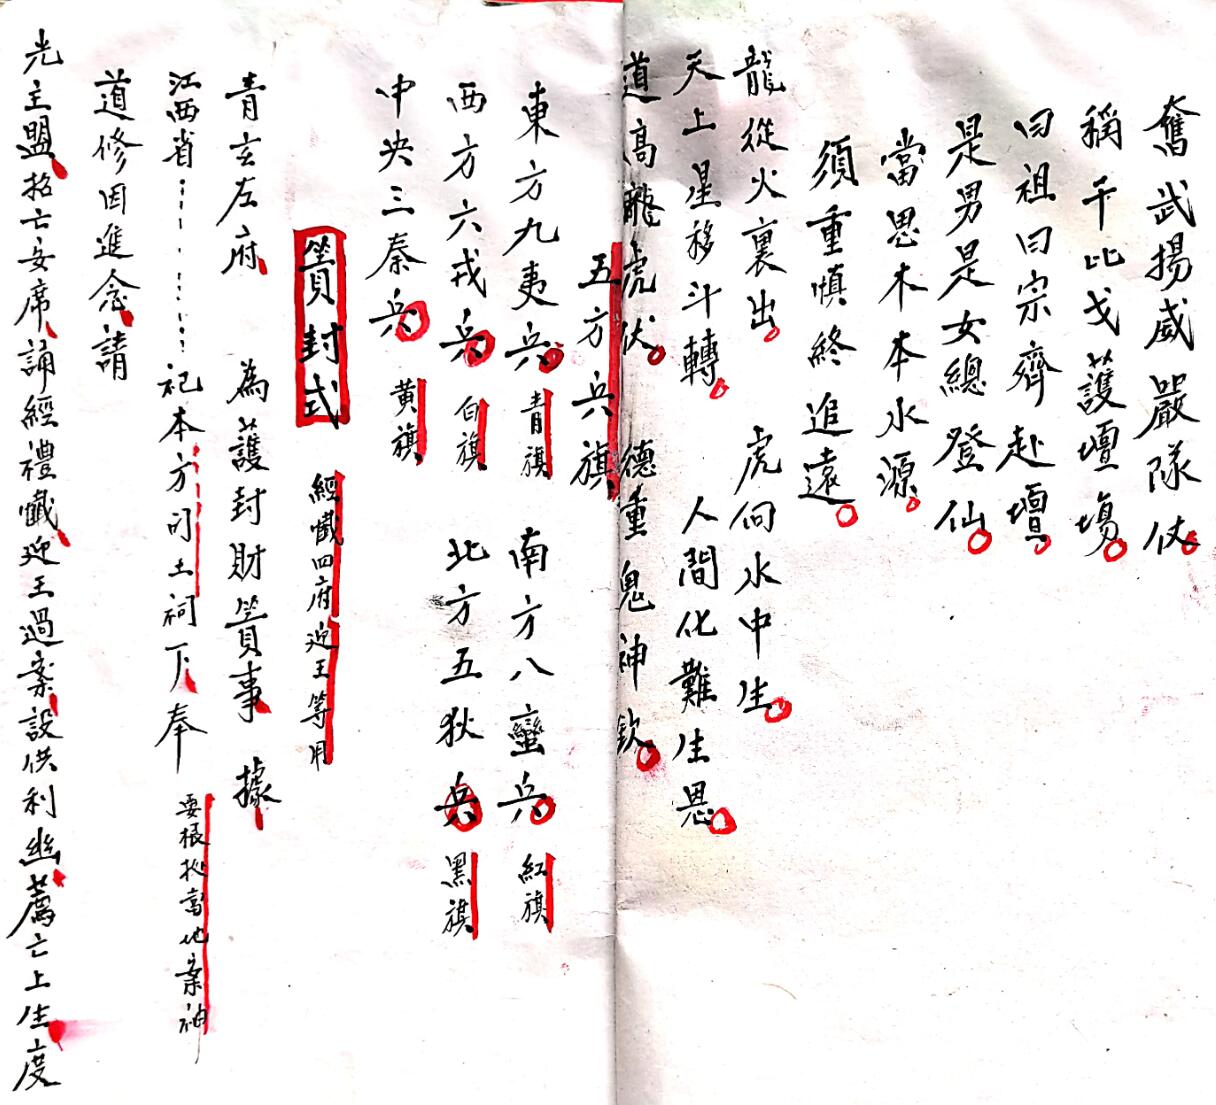 奮武揚威嚴隊仗
稱干比戈護壇場
曰祖曰宗齊赴壇
是男是女總登仙
當思木本水源
須重慎終追遠
龍從火裏出 虎向水中生
天上星移斗轉 人間化難生恩
道高龍虎伏 德重鬼神欽
五方兵旗
東方九夷兵 青旗 南方八蠻兵 紅旗
西方六戎兵 白旗 北方五狄兵 黑旗
中央三秦兵 黃旗
封式 經懺四府迎王等用
青玄左府 為護封財事 據
江西省 祀本方司土祠下奉 要根据當地案神
道修因進念請
光主盟招亡安席誦經禮懺迎王過案設供利幽薦亡上生度